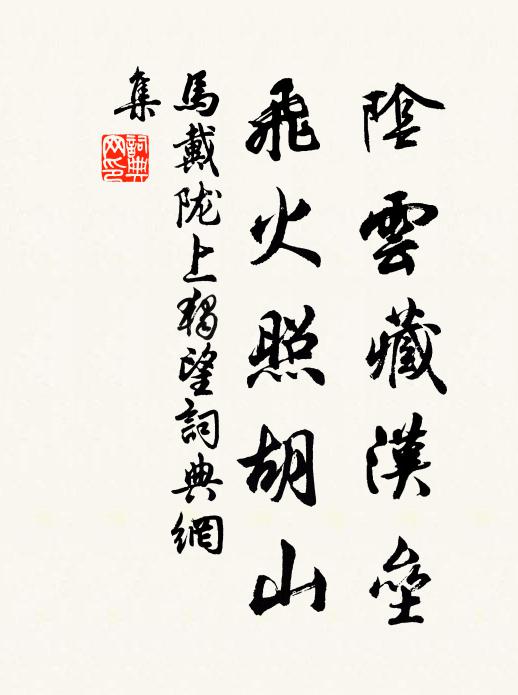 陰雲藏漢壘
飛火照胡山
馬戴陇上獨望詞典網
集
詞典
网印